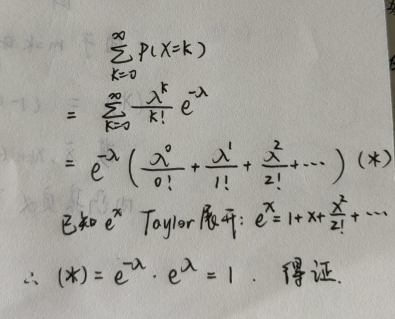 ∑_{k=0}^{∞} P(X=k)
= ∑_{k=0}^{∞} λ^k/k! e^{-λ}
= e^{-λ} ( λ^0/0! + λ^1/1! + λ^2/2! + ⋯ ) (*)
已知 e^x Taylor展开: e^x = 1 + x + x^2/2! + ⋯
∴ (*) = e^{-λ} · e^{λ} = 1 . 得证.